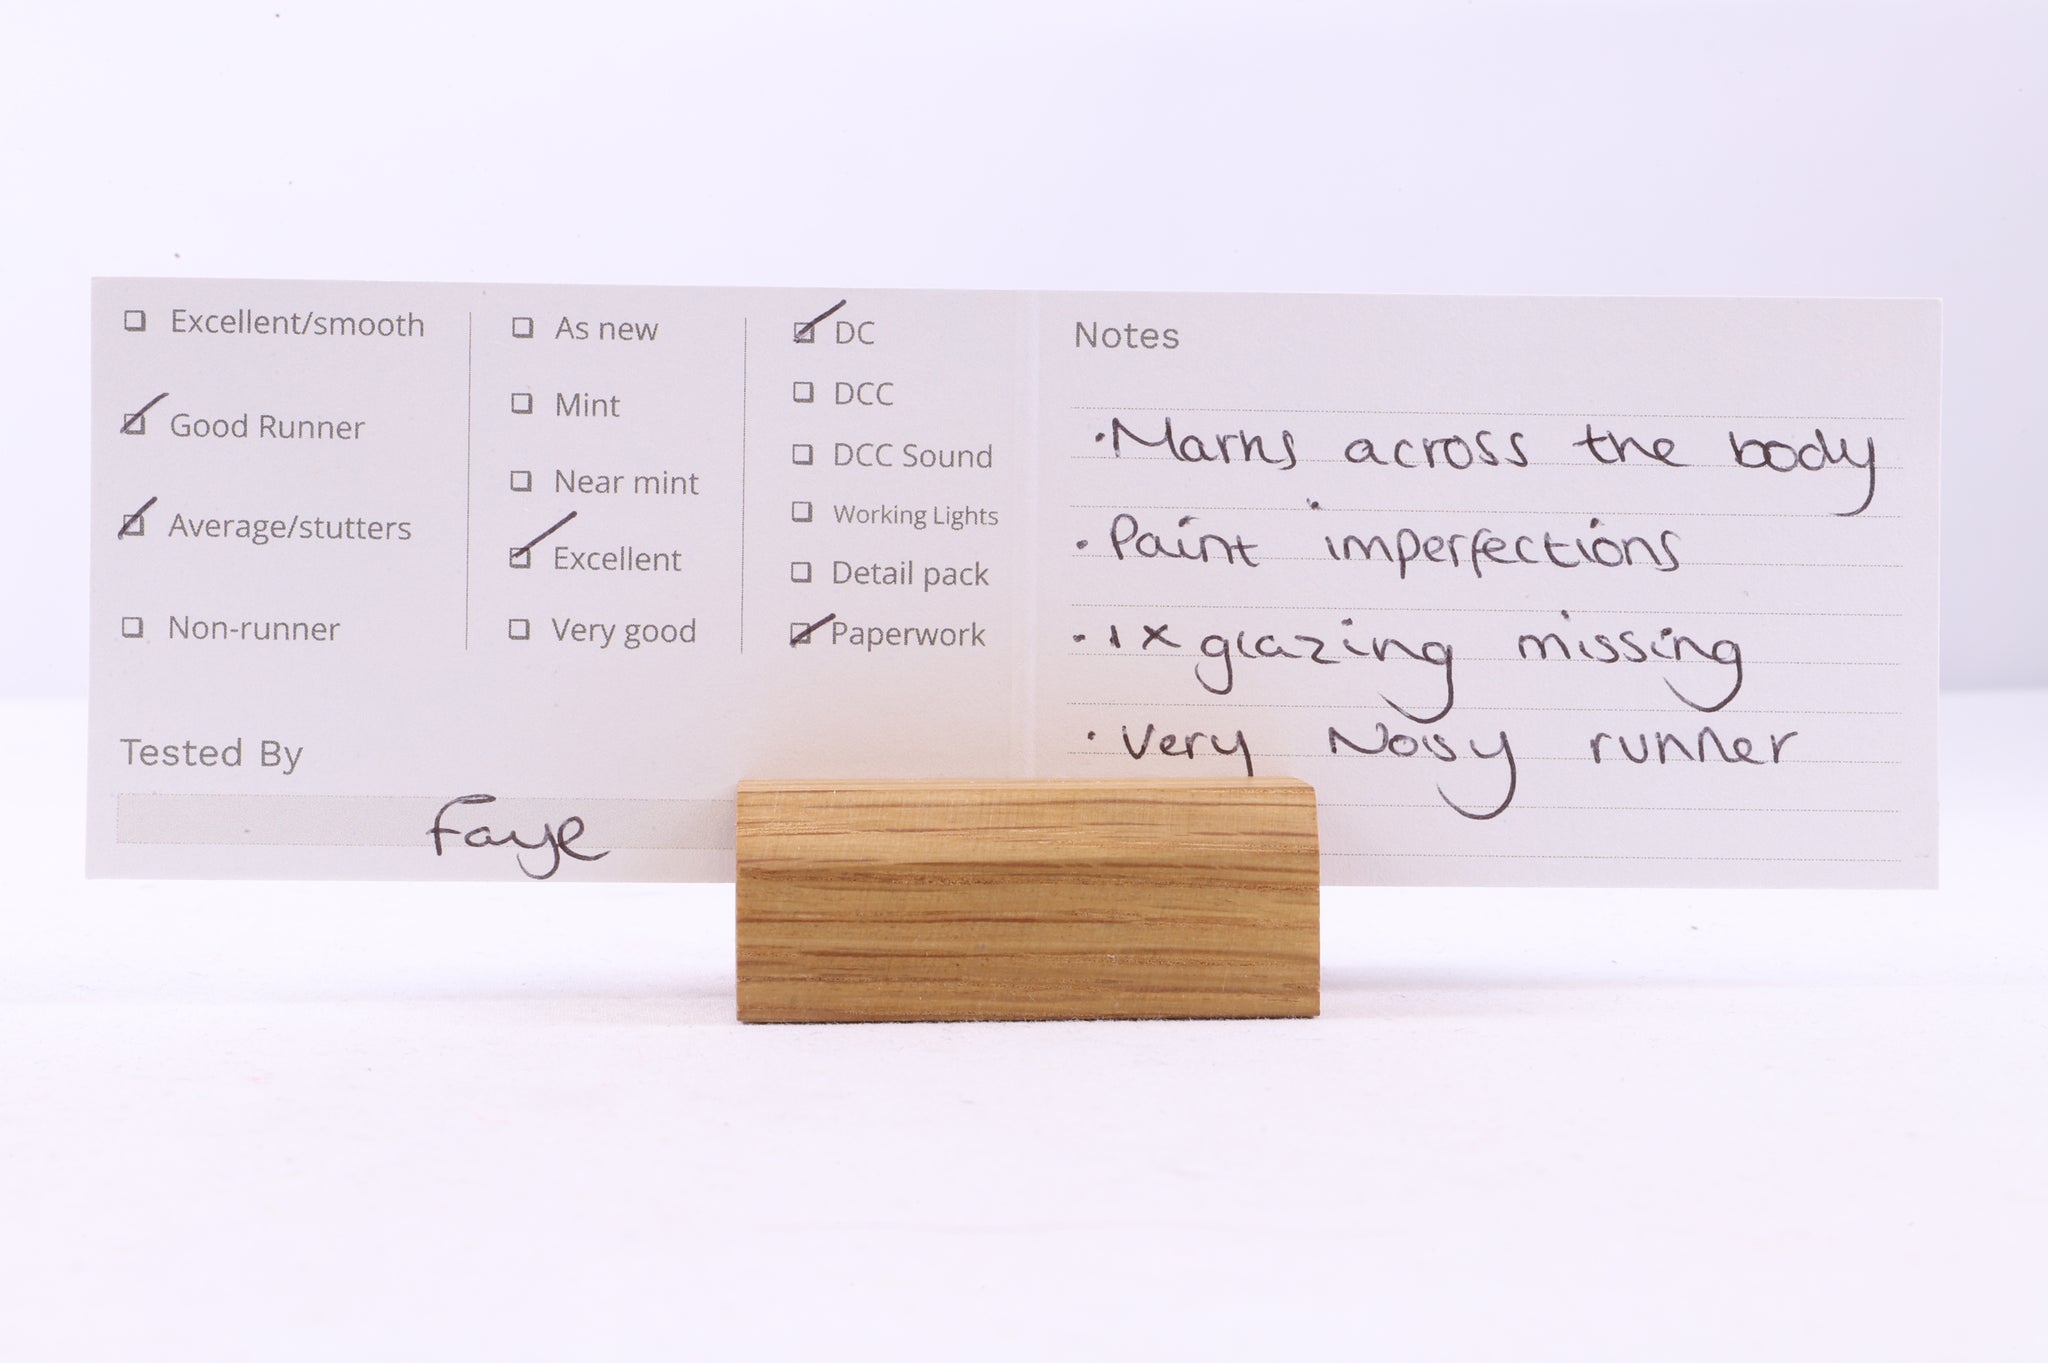 Excellent/smooth
Good Runner
Average/stutters
Non-runner
As new
Mint
Near mint
Excellent
Very good
DC
DCC
DCC Sound
Working Lights
Detail pack
Paperwork
Tested By
Faye
Notes
·Marks across the body
·Paint imperfections
·1x glazing missing
·Very Noisy runner